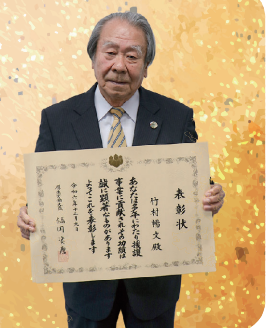 表彰状
竹村暢文殿
あなたは多年にわたり援護
事業に貢献されその功績は
誠に顕著なものがあります
よってこれを表彰します
令和六年十二月九日
厚生労働大臣 福岡資麿